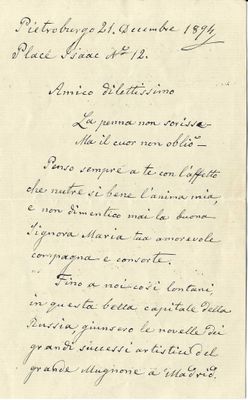 Pietroburgo 21. Decembre 1894
Place Isaac No. 12.
Amico dilettissimo
La penna non scrisse
Ma il cuor non obliò—
Penso sempre a te con l'affetto
che nutre si bene l'anima mia,
e non dimentico mai la buona
Signora Maria tua amorevole
compagna e consorte.
Fino a noi così lontani
in questa bella capitale della
Russia, giunsero le novelle dei
grandi successi artistici del
grande Mugnone à Madrid.